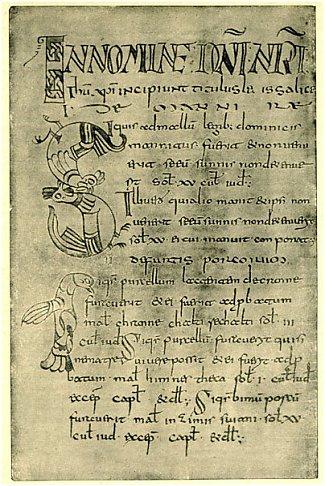 IN NOMINE DNI NRI
Ihu xpi incipiunt titulus salice
I. DE MANNIRE
Siquis ad mallum legib; dominicis
mannitus fuerit & non uene
rit seu sunnis non detenue
rit sol xv cul iud;
Ille uero qui alio manit & ipse non
uenerit seu sunnis non detenuerit
sol xv ei cui manuit conponat
II de furtis porcorum
Siquis purcellum lactantem de cranne
furuerit & ei fuerit adprobatum
mal chranne chalti rechalti sol III
cul iud Siquis purcellum furuerit qui si
ne matre uiuere possit & ei fuerit adpro
batum mal himnes theca sol I cul iud
excep capt & dil; Siquis bimum porcum
furuerit mal in zimis suiani sol xv
cul iud excep capt & dil;